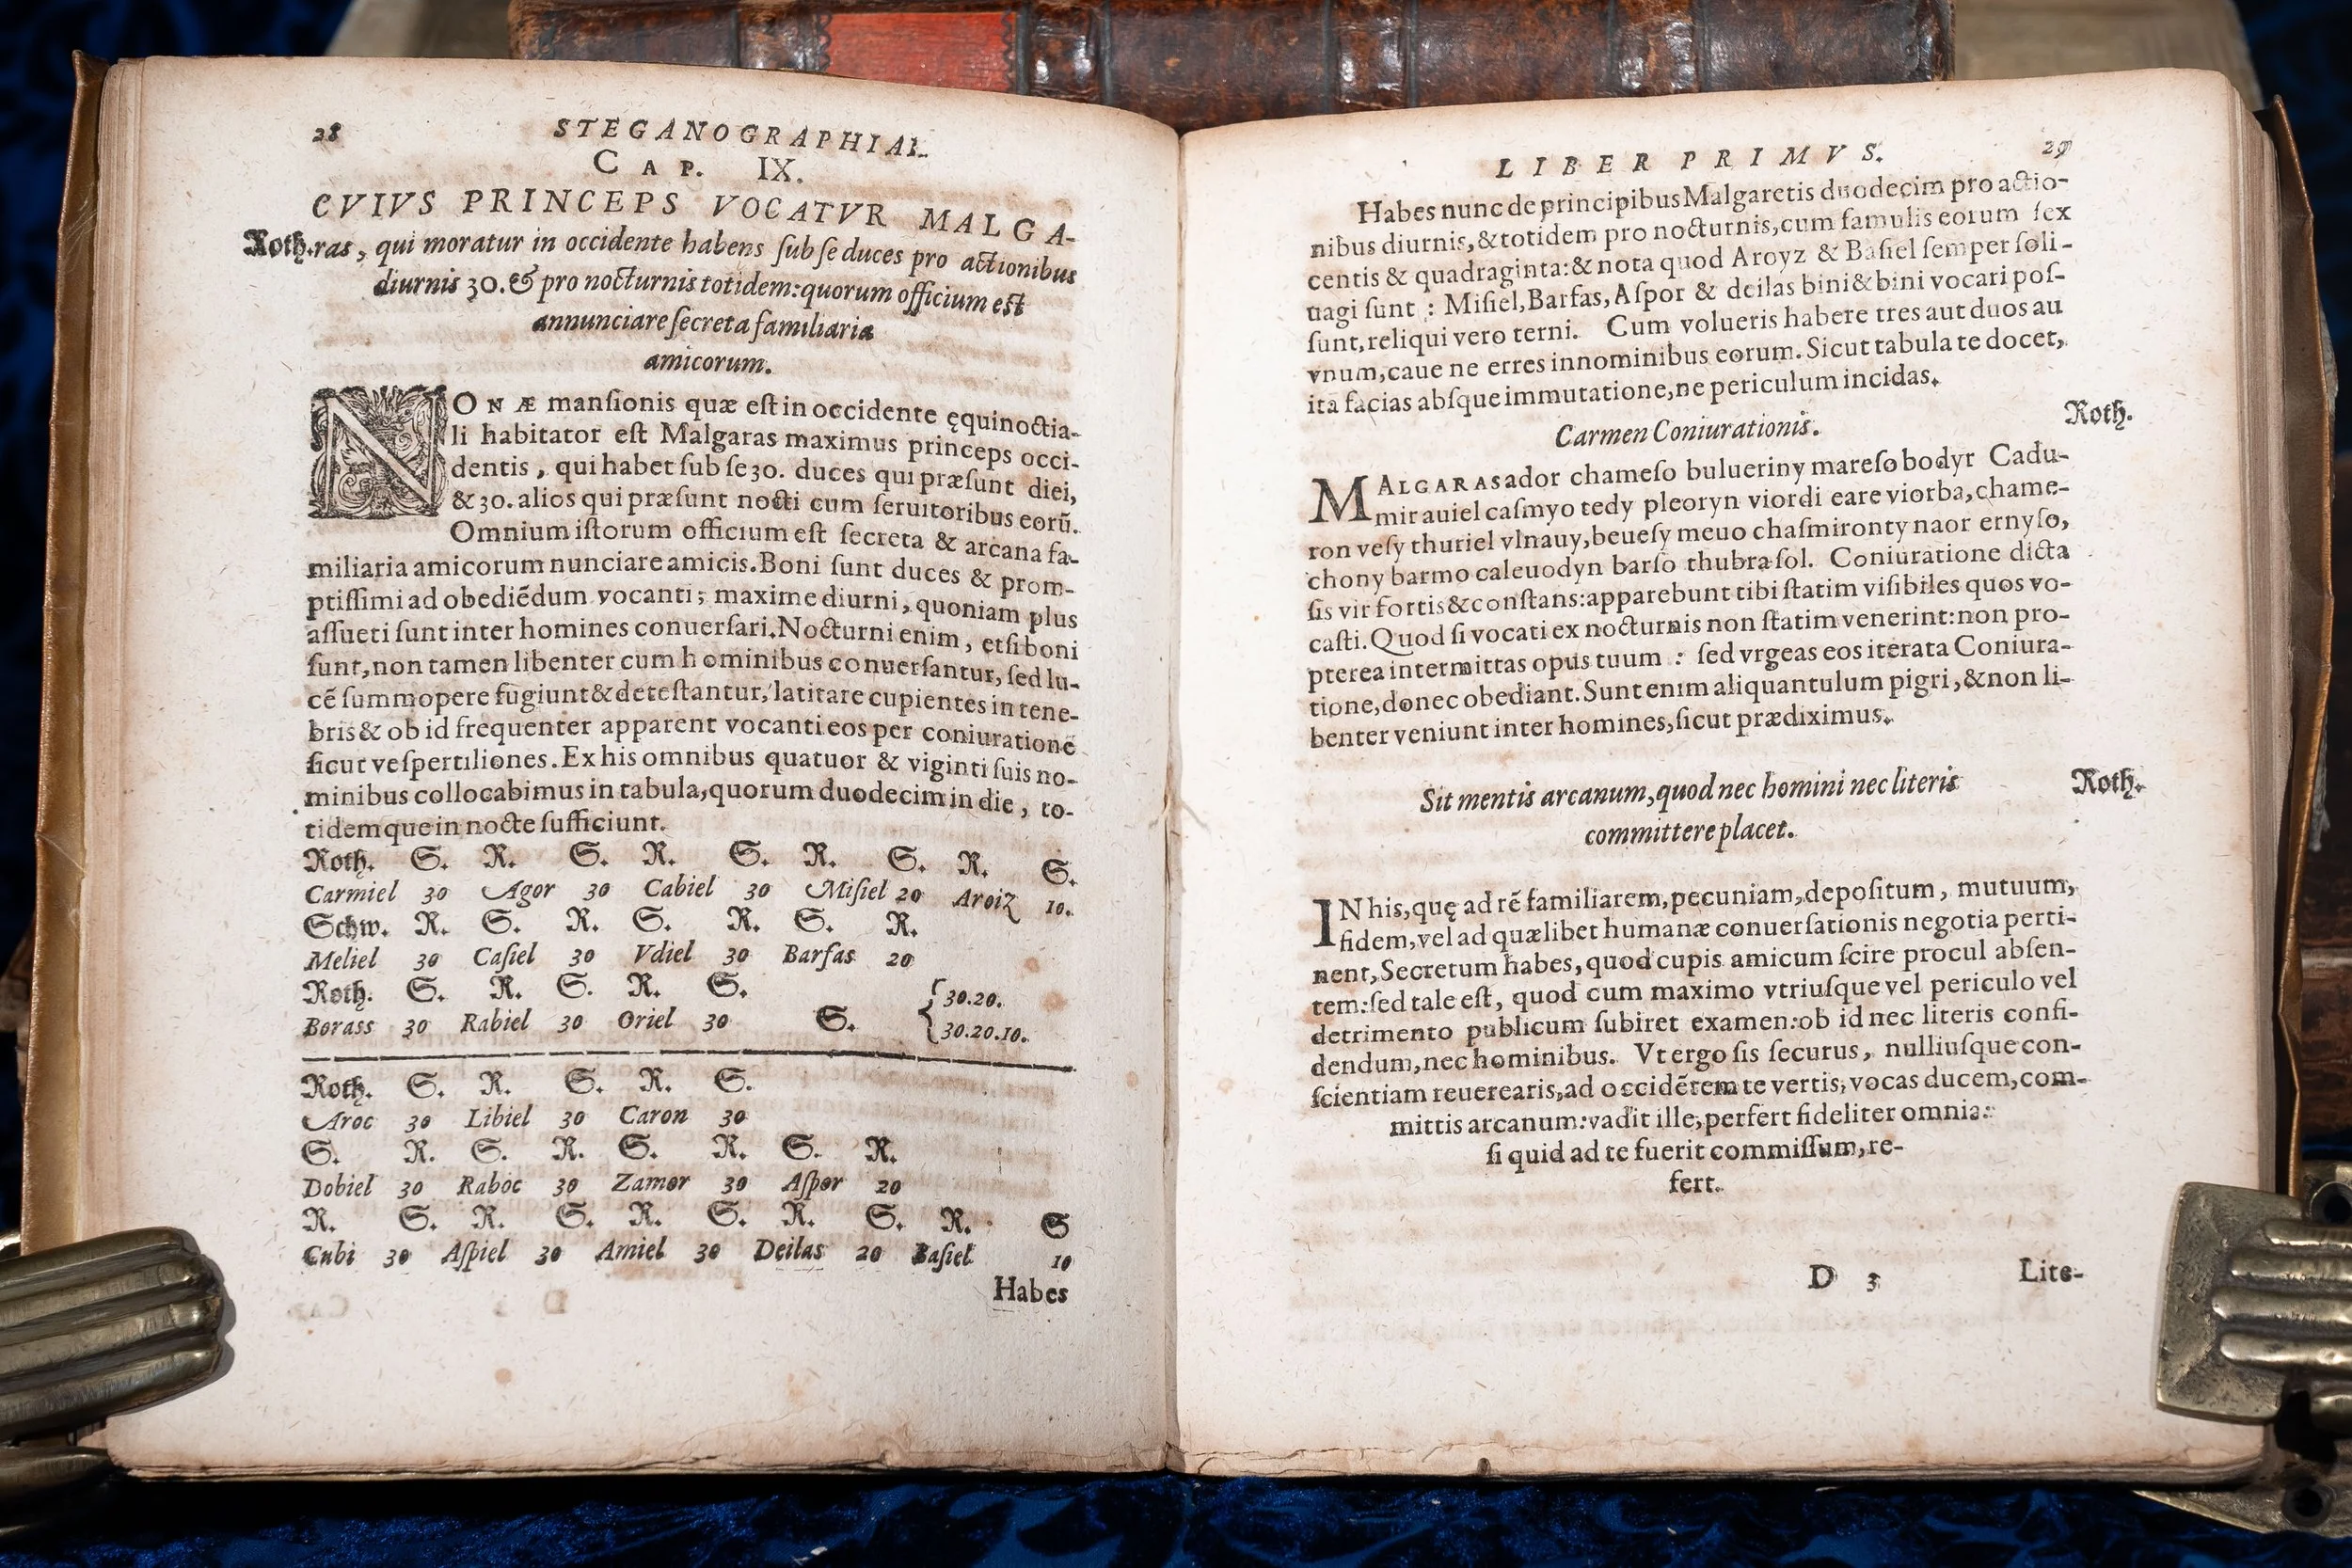 28
STEGANOGRAPHIAE.
CAP. IX.
CVIVS PRINCEPS VOCATVR MALGA-
Roth. ras, qui moratur in occidente habens ſub ſe duces pro actionibus
diurnis 30. & pro nocturnis totidem: quorum officium eſt
annunciare ſecreta familiaria
amicorum.
NONÆ manſionis quæ eſt in occidente ęquinoctia-
li habitator eſt Malgaras maximus princeps occi-
dentis, qui habet ſub ſe 30. duces qui præſunt diei,
& 30. alios qui præſunt nocti cum ſeruitoribus eorū.
Omnium iſtorum officium eſt ſecreta & arcana fa-
miliaria amicorum nunciare amicis. Boni ſunt duces & prom-
ptiſſimi ad obediēdum vocanti; maxime diurni, quoniam plus
aſſueti ſunt inter homines conuerſari. Nocturni enim, etſi boni
ſunt, non tamen libenter cum hominibus conuerſantur, ſed lu-
cē ſummopere fugiunt & deteſtantur, latitare cupientes in tene-
bris & ob id frequenter apparent vocanti eos per coniurationē
ſicut veſpertiliones. Ex his omnibus quatuor & viginti ſuis no-
minibus collocabimus in tabula, quorum duodecim in die, to-
tidemque in nocte ſufficiunt.
Roth. S. R. S. R. S. R. S. R. S.
Carmiel 30 Agor 30 Cabiel 30 Miſiel 20 Aroiz 10.
Schw. R. S. R. S. R. S. R.
Meliel 30 Caſiel 30 Vdiel 30 Barfas 20
Roth. S. R. S. R. S.
Borass 30 Rabiel 30 Oriel 30 S. { 30.20.
30.20.10.
Roth. S. R. S. R. S.
Aroc 30 Libiel 30 Caron 30
S. R. S. R. S. R. S. R.
Dobiel 30 Raboc 30 Zamor 30 Aſpor 20
R. S. R. S. R. S. R. S. R. S
Cubi 30 Aſpiel 30 Amiel 30 Deilas 20 Baſiel 10
Habes
LIBER PRIMVS. 29
Habes nunc de principibus Malgaretis duodecim pro actio-
nibus diurnis, & totidem pro nocturnis, cum famulis eorum ſex
centis & quadraginta: & nota quod Aroyz & Baſiel ſemper ſoli-
uagi ſunt : Miſiel, Barfas, Aſpor & deilas bini & bini vocari poſ-
ſunt, reliqui vero terni. Cum volueris habere tres aut duos au
vnum, caue ne erres innominibus eorum. Sicut tabula te docet,
ita facias abſque immutatione, ne periculum incidas.
Carmen Coniurationis. Roth.
MALGARAS ador chameſo bulueriny mareſo bodyr Cadu-
mir auiel caſmyo tedy pleoryn viordi eare viorba, chame-
ron veſy thuriel vlnauy, beueſy meuo chaſmironty naor ernyſo,
chony barmo caleuodyn barſo thubra ſol. Coniuratione dicta
ſis vir fortis & conſtans: apparebunt tibi ſtatim viſibiles quos vo-
caſti. Quod ſi vocati ex nocturnis non ſtatim venerint: non pro-
pterea intermittas opus tuum : ſed vrgeas eos iterata Coniura-
tione, donec obediant. Sunt enim aliquantulum pigri, & non li-
benter veniunt inter homines, ſicut prædiximus.
Sit mentis arcanum, quod nec homini nec literis Roth.
committere placet.
IN his, quę ad rē familiarem, pecuniam, depoſitum, mutuum,
fidem, vel ad quælibet humanæ conuerſationis negotia perti-
nent, Secretum habes, quod cupis amicum ſcire procul abſen-
tem: ſed tale eſt, quod cum maximo vtriuſque vel periculo vel
detrimento publicum ſubiret examen: ob id nec literis confi-
dendum, nec hominibus. Vt ergo ſis ſecurus, nulliuſque con-
ſcientiam reuerearis, ad occidētem te vertis, vocas ducem, com-
mittis arcanum: vadit ille, perfert fideliter omnia:
ſi quid ad te fuerit commiſſum, re-
fert.
D 3 Lite-